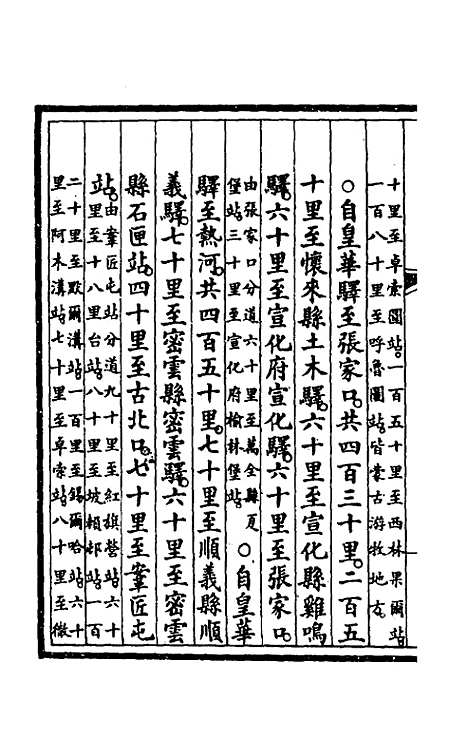 十里至卓索圖站一百五十里至西林果爾站
一百八十里至呼魯圖站皆蒙古游牧地右
○自皇華驛至張家口共四百三十里二百五
十里至懷來縣土木驛六十里至宣化縣雞鳴
驛六十里至宣化府宣化驛六十里至張家口
由張家口分道六十里至萬全縣夏
堡站三十里至宣化府榆林堡站
○自皇華
驛至熱河共四百五十里七十里至順義縣順
義驛七十里至密雲縣密雲驛六十里至密雲
縣石匣站四十里至古北口七十里至鞌匠屯
站
由鞌匠屯站分道九十里至紅旗營站六十
里至十八里台站八十里至坡賴邨站一百
二十里至默爾溝站一百里至錫爾哈站六十
里至阿木溝站七十里至卓索站八十里至徵